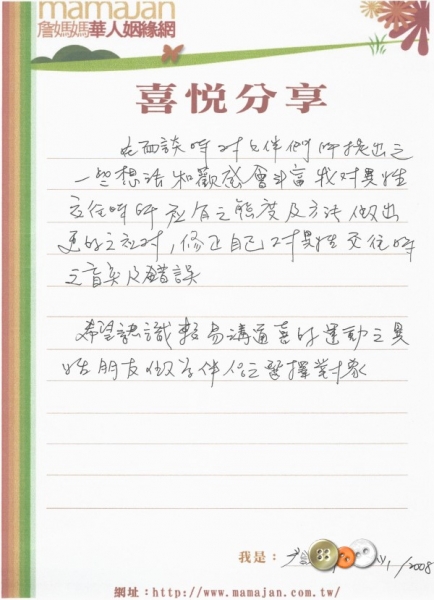 mamajan
詹媽媽華人姻緣網
喜悅分享
在面談時對女伴們所提出之
一些想法和觀感會豐富我對異性
交往時所應有之態度及方法做出
更好之應對，修正自己對異性交往時
之盲點及錯誤
希望認識較易溝通喜好運動之異
性朋友做為伴侶之選擇對象
我是：
1/2008
網址：http://www.mamajan.com.tw/